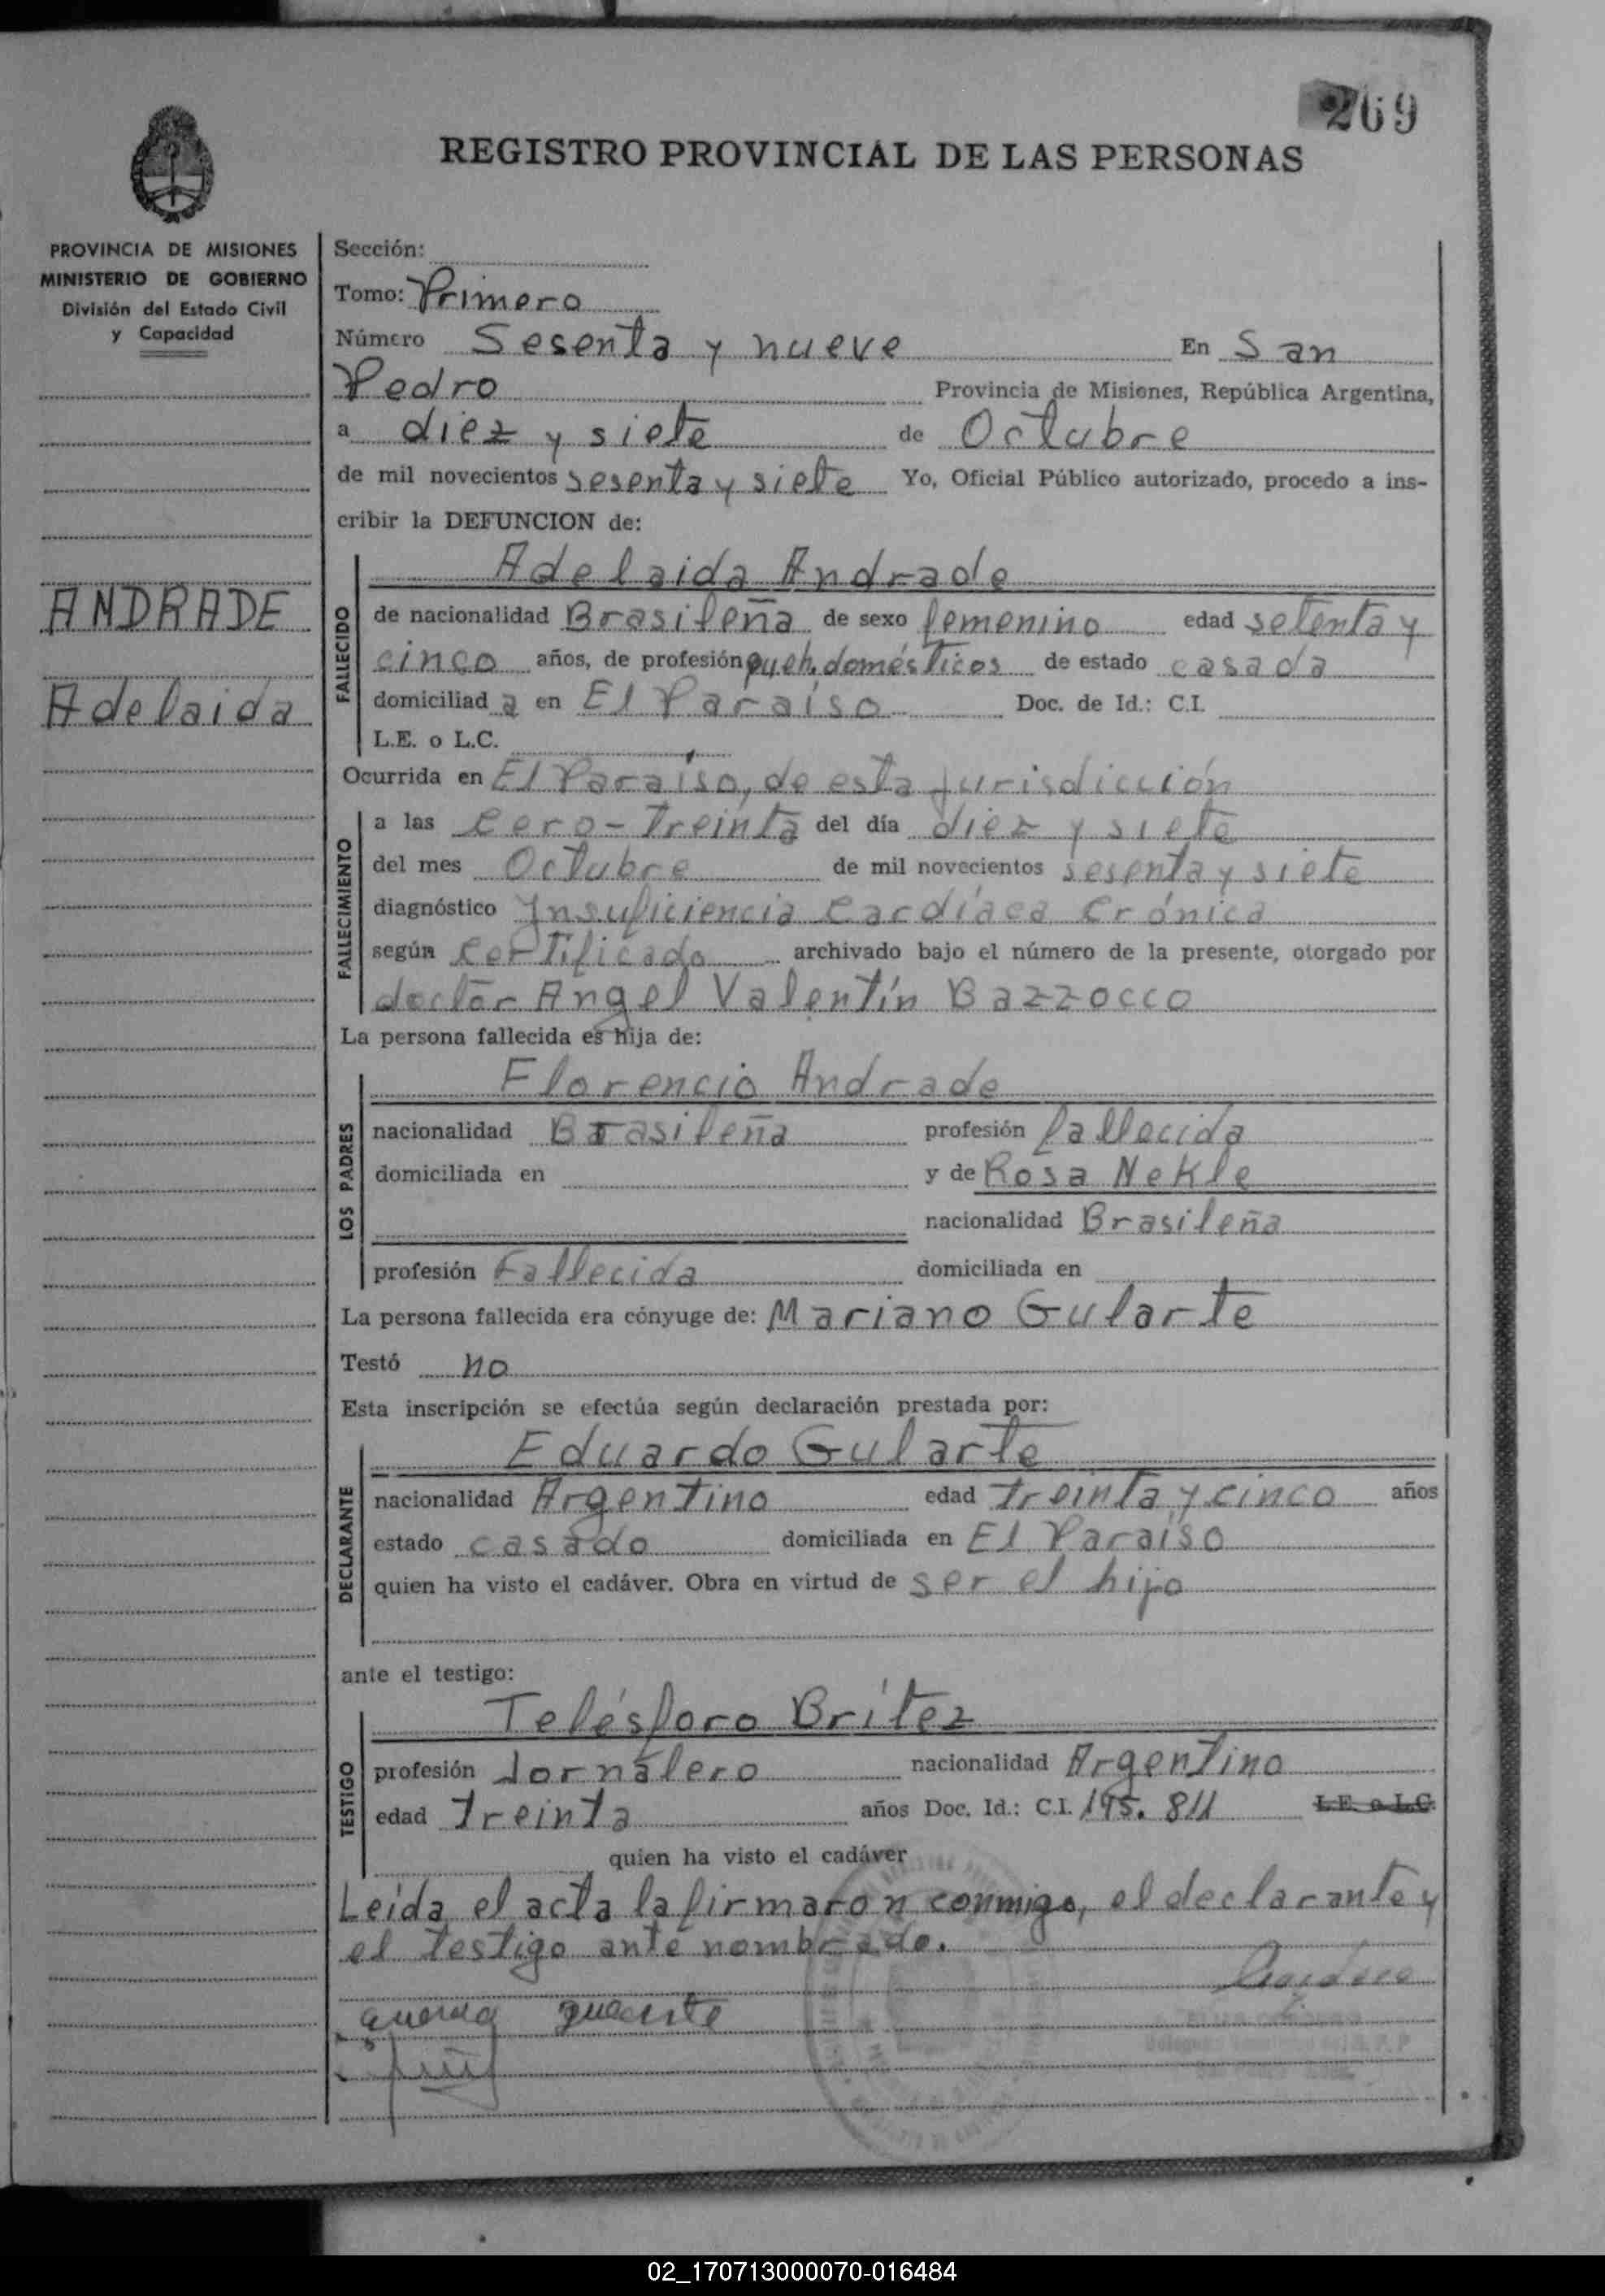 269
REGISTRO PROVINCIAL DE LAS PERSONAS
PROVINCIA DE MISIONES
MINISTERIO DE GOBIERNO
División del Estado Civil
y Capacidad
ANDRADE
Adelaida
Sección:
Tomo: Primero
Número Sesenta y nueve En San
Pedro Provincia de Misiones, República Argentina,
a diez y siete de Octubre
de mil novecientos sesenta y siete Yo, Oficial Público autorizado, procedo a ins-
cribir la DEFUNCION de:
FALLECIDO
Adelaida Andrade
de nacionalidad Brasileña de sexo femenino edad setenta y
cinco años, de profesión queh. domésticos de estado casada
domiciliad a en El Paraíso Doc. de Id.: C.I.
L.E. o L.C.
Ocurrida en El Paraíso, de esta jurisdicción
FALLECIMIENTO
a las cero-treinta del día diez y siete
del mes Octubre de mil novecientos sesenta y siete
diagnóstico Insuficiencia Cardíaca Crónica
según certificado archivado bajo el número de la presente, otorgado por
doctor Angel Valentín Bazzocco
La persona fallecida es hija de:
LOS PADRES
Florencio Andrade
nacionalidad Brasileña profesión fallecida
domiciliada en y de Rosa Nekle
nacionalidad Brasileña
profesión Fallecida domiciliada en
La persona fallecida era cónyuge de: Mariano Gularte
Testó no
Esta inscripción se efectúa según declaración prestada por:
DECLARANTE
Eduardo Gularte
nacionalidad Argentino edad treinta y cinco años
estado casado domiciliada en El Paraíso
quien ha visto el cadáver. Obra en virtud de ser el hijo
ante el testigo:
TESTIGO
Telésforo Brítez
profesión Jornalero nacionalidad Argentino
edad treinta años Doc. Id.: C.I. 195.811 L.E. o L.C.
quien ha visto el cadáver
Leída el acta la firmaron conmigo, el declarante y
el testigo ante nombrado.
02_170713000070-016484